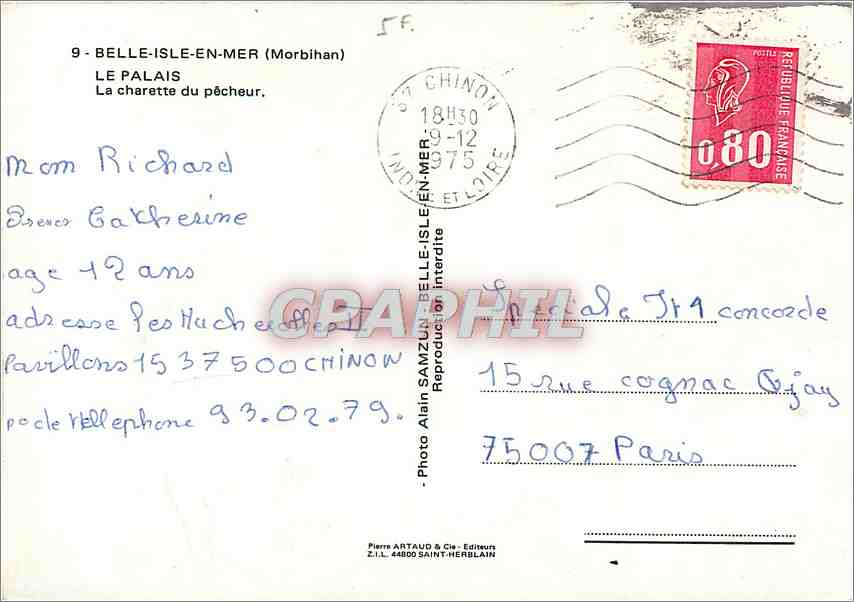 5F.
9 - BELLE-ISLE-EN-MER (Morbihan)
LE PALAIS
La charette du pêcheur.
37 CHINON
18H30
9-12
1975
INDRE ET LOIRE
POSTES
REPUBLIQUE FRANÇAISE
0,80
mom Richard
Catherine
age 12 ans
adresse les
Pavillons 15 37500 CHINON
93.02.79.
- Photo Alain SAMZUN - BELLE-ISLE-EN-MER -
Reproduction interdite
CPAPHIL
Speciale concorde
15 rue cognac Gjay
75007 Paris
Pierre ARTAUD & Cie - Editeurs
Z.I.L. 44800 SAINT-HERBLAIN